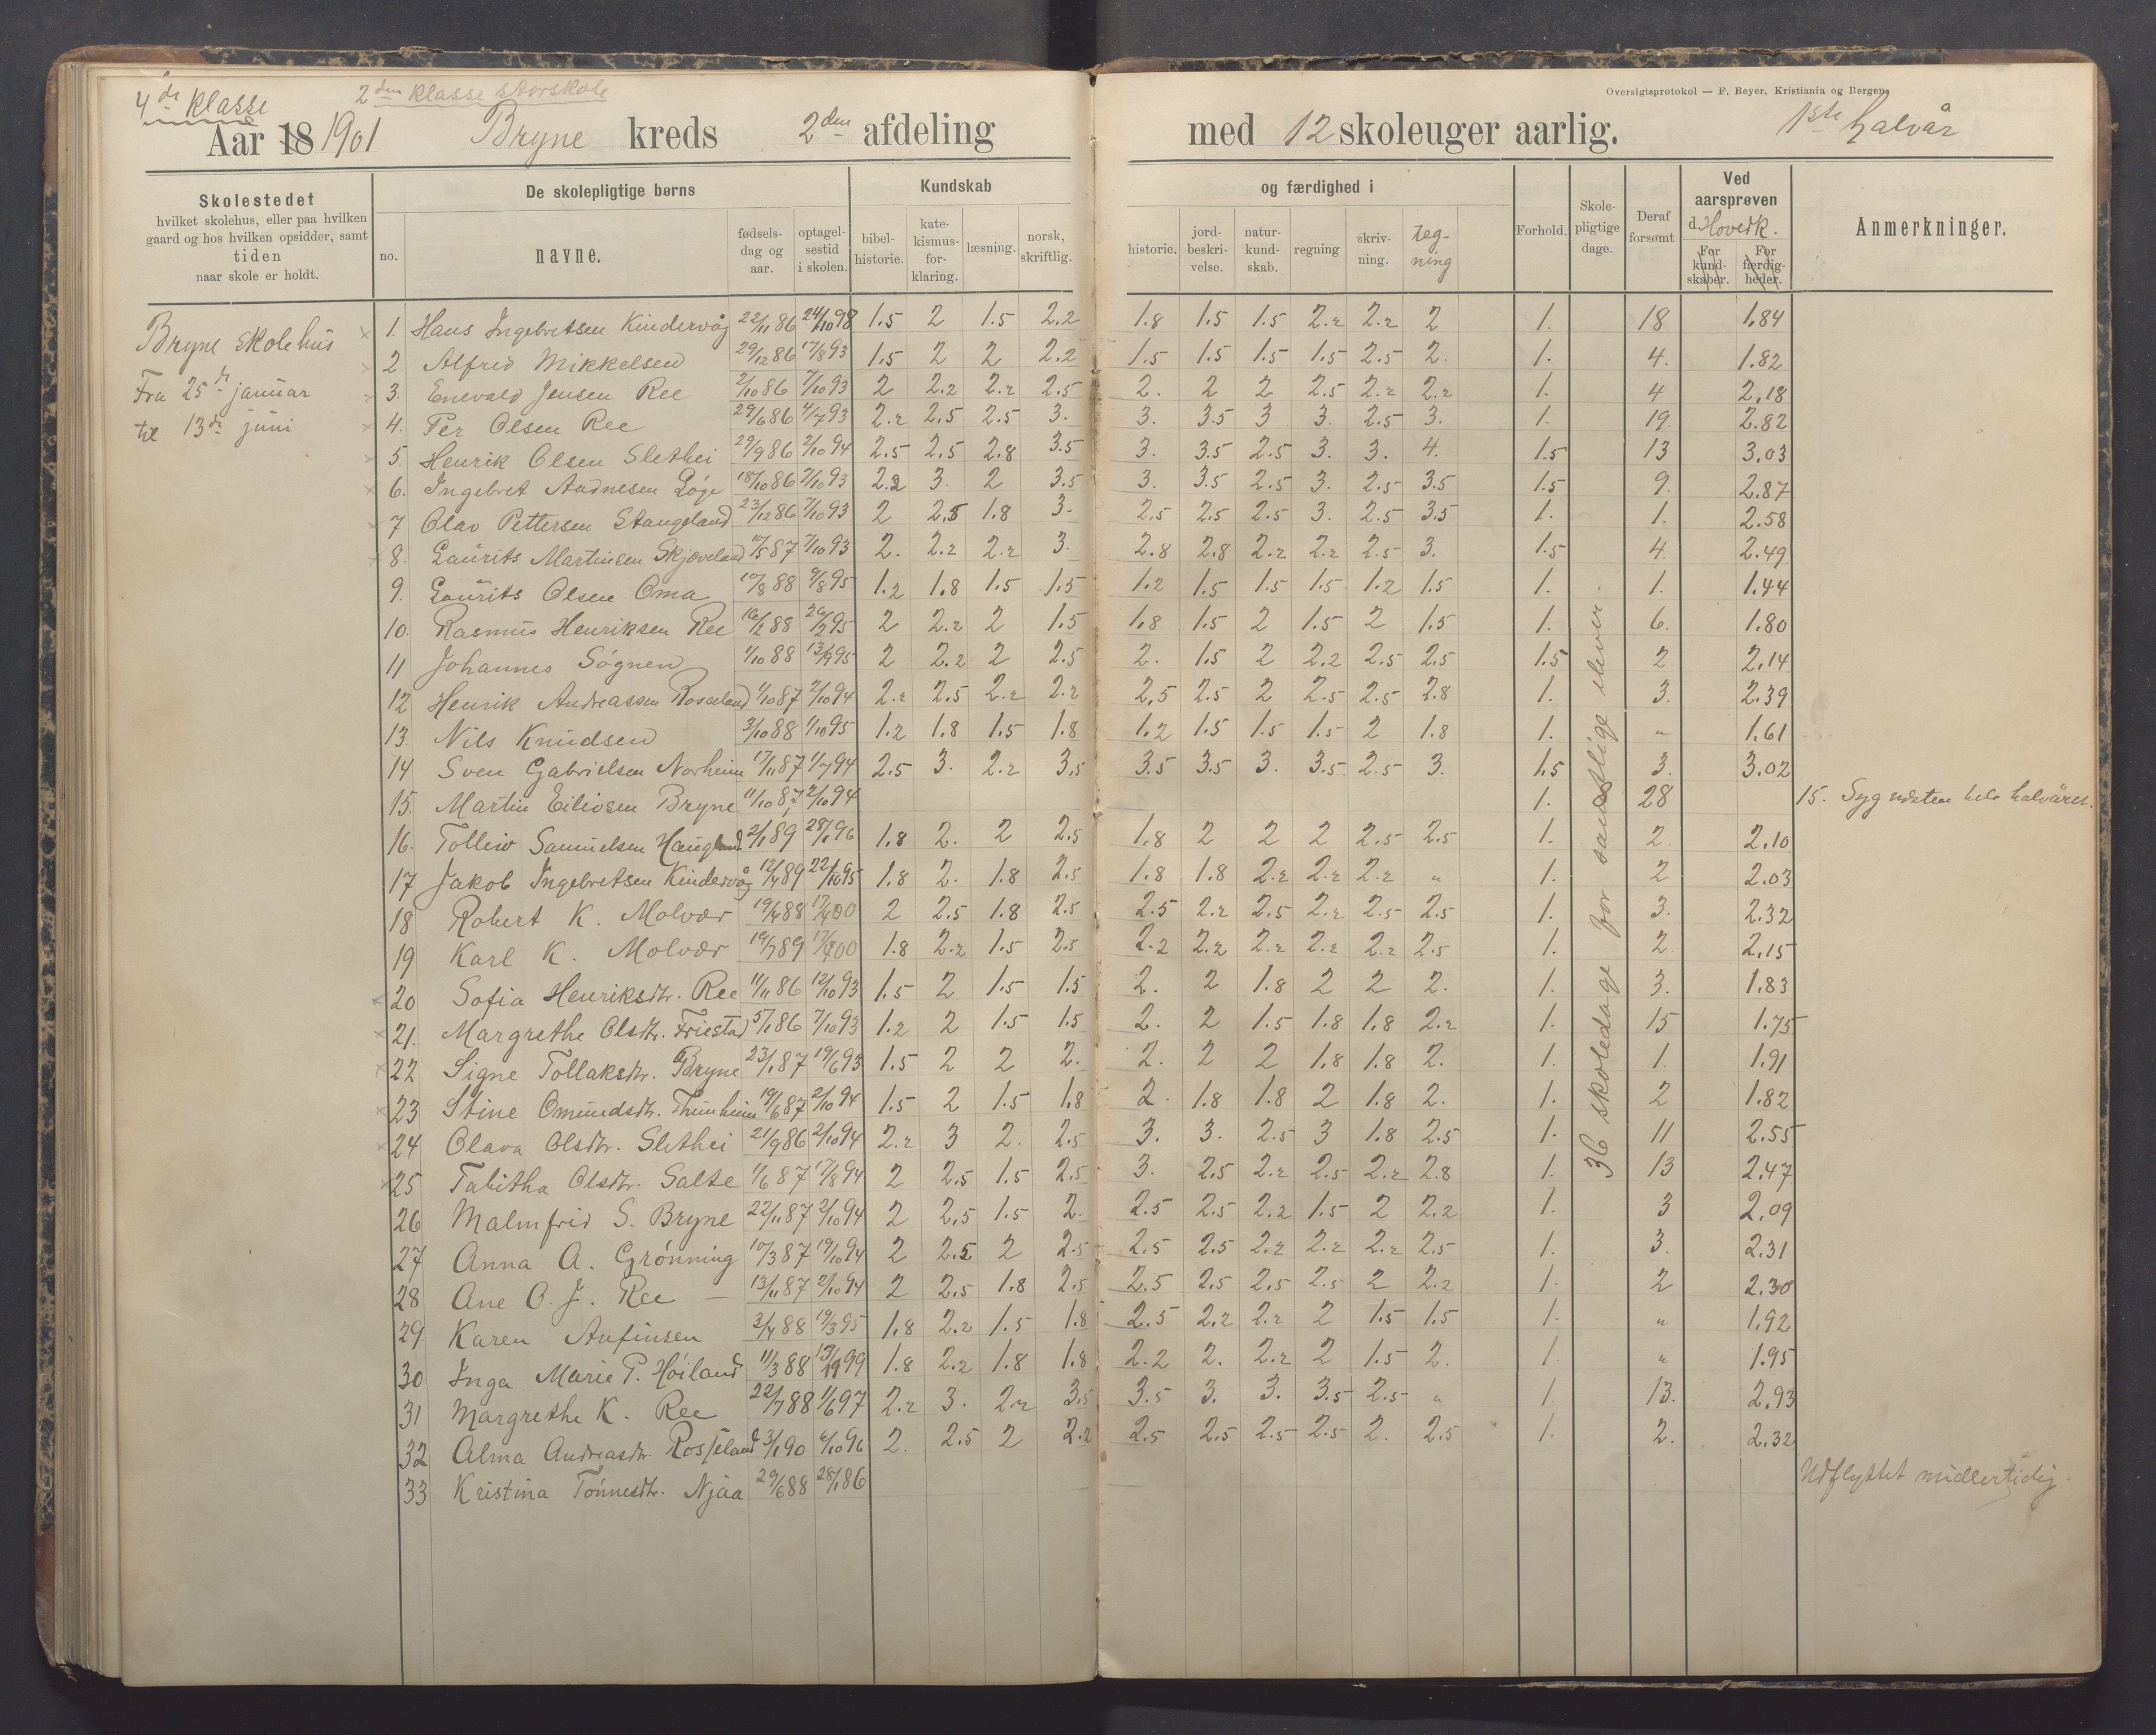 4de klasse 2den klasse storskole
Oversigtsprotokol — F. Beyer, Kristiania og Bergen.
Aar 18 1901 Bryne kreds 2den afdeling med 12 skoleuger aarlig. 1ste halvår
Skolestedet
hvilket skolehus, eller paa hvilken
gaard og hos hvilken opsidder, samt
tiden
naar skole er holdt.
De skolepligtige børns
no. navne. fødsels-dag og aar. optagel-sestid i skolen.
Kundskab og færdighed i
bibel-historie. kate-kismus-for-klaring. læsning. norsk, skriftlig. historie. jord-beskri-velse. natur-kund-skab. regning skriv-ning. teg-ning
Forhold. Skole-pligtige dage. Deraf forsømt
Ved aarsprøven d. Hovedk.
For kund-skaber. For færdig-heder.
Anmerkninger.
Bryne skolehus
Fra 25de januar
til 13de juni
36 skoledage for samtlige elever.
1. Hans Ingebretsen Kindervåg 22/11 86 24/10 98 1.5 2 1.5 2.2 1.8 1.5 1.5 2.2 2.2 2 1. 18 1.84
2. Alfred Mikkelsen 29/12 86 17/8 93 1.5 2 2 2.2 1.5 1.5 1.5 1.5 2.5 2. 1. 4. 1.82
3. Enevald Jensen Ree 2/10 86 7/10 93 2 2.2 2.2 2.5 2. 2 2 2.5 2.2 2.2 1. 4 2.18
4. Per Olsen Ree 29/6 86 4/7 93 2.2 2.5 2.5 3. 3. 3.5 3 3. 2.5 3. 1. 19. 2.82
5. Henrik Olsen Slethei 29/9 86 2/10 94 2.5 2.5 2.8 3.5 3. 3.5 2.5 3. 3. 4. 1.5 13 3.03
6. Ingebret Audnesen Løge 18/10 86 7/10 93 2.2 3. 2 3.5 3. 3.5 2.5 3. 2.5 3.5 1.5 9. 2.87
7 Olav Pettersen Stangeland 23/12 86 7/10 93 2 2.5 1.8 3. 2.5 2.5 2.5 3. 2.5 3.5 1. 1. 2.58
8. Laurits Martinsen Skjæveland 11/5 87 7/10 93 2. 2.2 2.2 3. 2.8 2.8 2.2 2.2 2.5 3. 1.5 4. 2.49
9. Laurits Olsen Oma 10/8 88 9/8 95 1.2 1.8 1.5 1.5 1.2 1.5 1.5 1.5 1.2 1.5 1. 1. 1.44
10. Rasmus Henriksen Ree 16/2 88 26/2 95 2 2.2 2 1.5 1.8 1.5 2 1.5 2 1.5 1. 6. 1.80
11 Johannes Søgnen 1/10 88 13/9 95 2 2.2 2 2.5 2. 1.5 2 2.2 2.5 2.5 1.5 2. 2.14
12 Henrik Andreassen Rosseland 1/10 87 2/10 94 2.2 2.5 2.2 2.2 2.5 2.5 2 2.5 2.5 2.8 1. 3. 2.39
13. Nils Knudsen 3/10 88 1/10 95 1.2 1.8 1.5 1.8 1.2 1.5 1.5 1.5 2 1.8 1. " 1.61
14 Sven Gabrielsen Norheim 17/11 87 11/7 94 2.5 3. 2.2 3.5 3.5 3.5 3. 3.5 2.5 3. 1.5 3. 3.02
15. Martin Eilivsen Bryne 11/10 87 2/10 94 1. 28 15. Syg næsten hele halvåret.
16. Tolleiv Samuelsen Haugland 2/1 89 28/1 96 1.8 2. 2 2.5 1.8 2 2 2 2.5 2.5 1. 2. 2.10
17 Jakob Ingebretsen Kindervåg 12/4 89 22/10 95 1.8 2. 1.8 2.5 1.8 1.8 2.2 2.2 2.2 " 1. 2 2.03
18 Robert K. Molvær 19/4 88 17/4 00 2 2.5 1.8 2.5 2.5 2.2 2.5 2.2 2.5 2.5 1. 3. 2.32
19 Karl K. Molvær 19/7 89 17/4 00 1.8 2.2 1.5 2.5 2.2 2.2 2.2 2.2 2.2 2.5 1. 2. 2.15
20 Sofia Henriksdtr. Ree 11/11 86 12/10 93 1.5 2 1.5 1.5 2. 2 1.8 2 2 2. 1. 3. 1.83
21. Margrethe Olsdtr. Friestad 5/1 86 7/10 93 1.2 2 1.5 1.5 2. 2 1.5 1.8 1.8 2.2 1. 15 1.75
22 Signe Tollaksdtr. Bryne 23/1 87 19/6 93 1.5 2 2 2. 2. 2 2 1.8 1.8 2. 1. 1. 1.91
23 Stine Omundsdtr. Thunheim 19/6 87 2/10 94 1.5 2 1.5 1.8 2. 1.8 1.8 2 1.8 2. 1. 2 1.82
24 Olava Olsdtr. Slethei 21/9 86 2/10 94 2.2 3 2. 2.5 3. 3. 2.5 3 1.8 2.5 1. 11 2.55
25 Tabitha Olsdtr. Salte 1/6 87 17/8 94 2 2.5 1.5 2.5 3. 2.5 2.2 2.5 2.2 2.8 1. 13 2.47
26 Malmfrid S. Bryne 22/11 87 2/10 94 2 2.5 1.5 2. 2.5 2.5 2.2 1.5 2 2.2 1. 3 2.09
27 Anna A. Grønning 10/3 87 19/10 94 2 2.5 2 2.5 2.5 2.5 2.2 2.2 2.2 2.5 1. 3. 2.31
28 Ane O. J. Ree — 13/11 87 2/10 94 2 2.5 1.8 2.5 2.5 2.5 2.5 2.5 2 2.2 1. 2 2.30
29 Karen Aufinsen 3/4 88 19/3 95 1.8 2.2 1.5 1.8 2.5 2.2 2.2 2 1.5 1.5 1. " 1.92
30 Inga Marie P. Høiland 11/3 88 99 1.8 2.2 1.8 1.8 2.2 2. 2.2 2 1.5 2. 1. " 1.95
31 Margrethe K. Ree 22/7 88 1/6 97 2.2 3. 2.2 3.5 3.5 3. 3. 3.5 2.5 " 1. 13. 2.93
32 Alma Andreasdtr Rosseland 3/1 90 6/10 96 2. 2.5 2 2.2 2.5 2.5 2.5 2.5 2. 2.5 1. 2. 2.32
33 Kristina Tønnesdtr. Njaa 29/6 88 28/1 86 Udflyttet midlertidig.